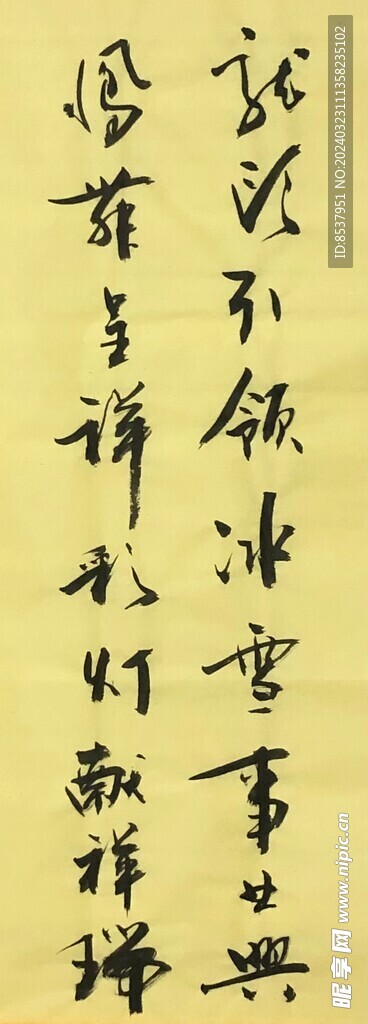 龍頭引領冰雪事业興
鳳舞呈祥彩灯献祥瑞
ID:8537951 NO:20240323111358235102
昵享网 www.nipic.cn